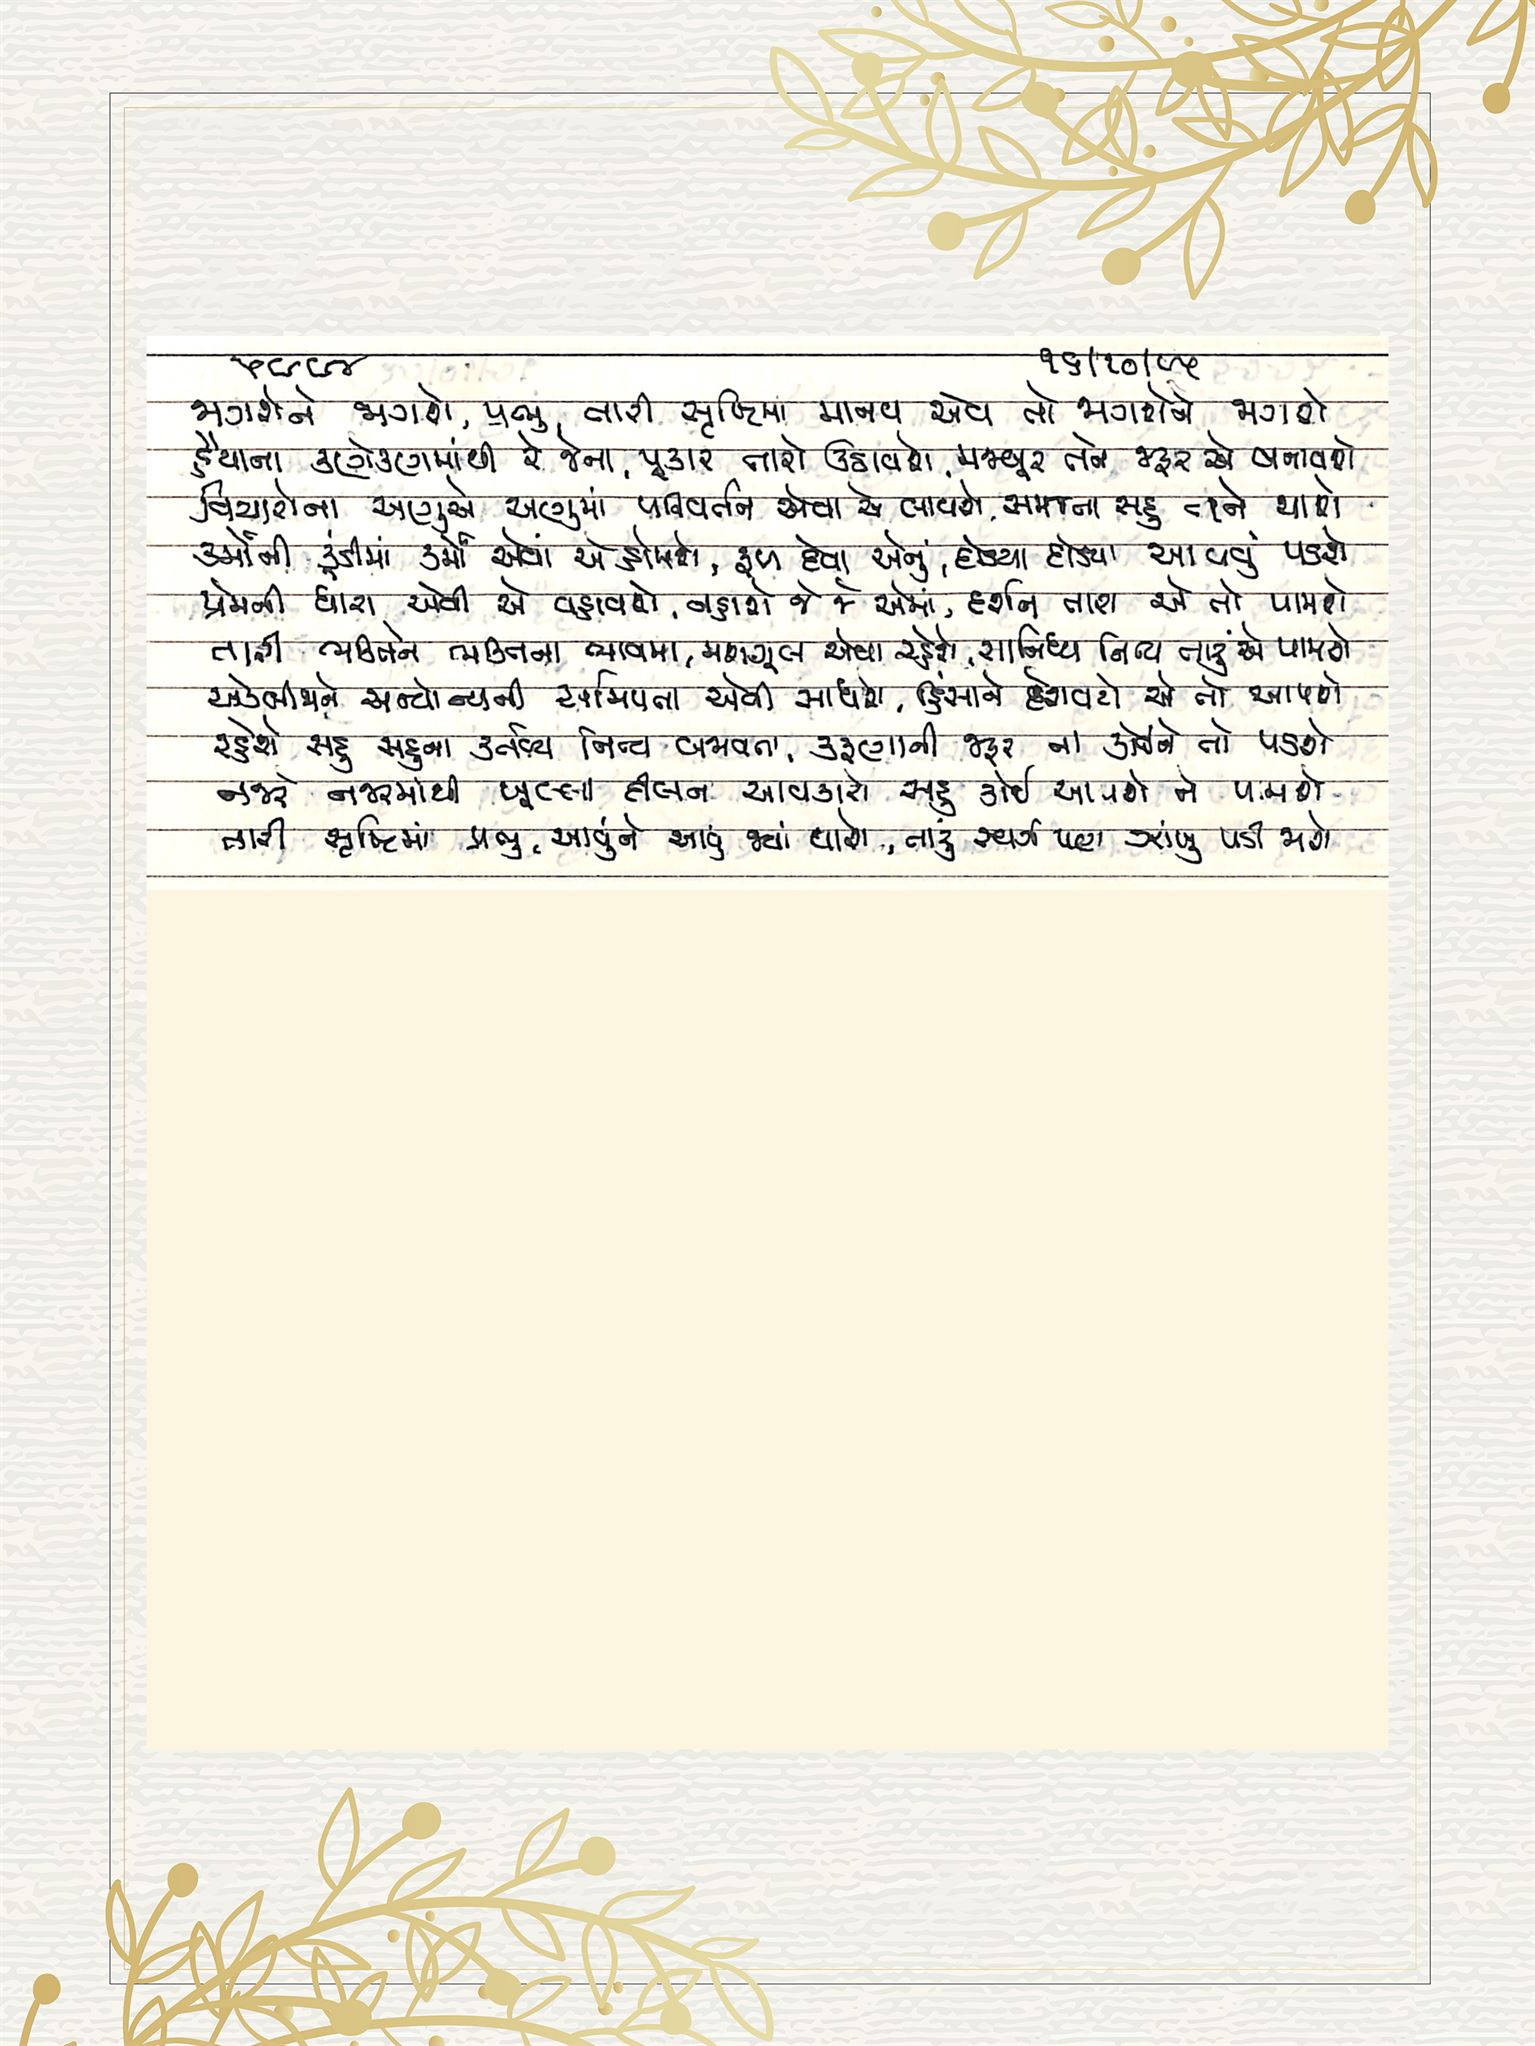 ૫૯૯૪ ૧૬/૧૦/૯૫
જાગશેને જાગશે, પ્રભુ, તારી સૃષ્ટિમાં માનવ એવ તો જાગશેને જાગશે
હૈયાના કણેકણમાંથી રે જેના, પૂકાર તારો ઉઠાવશે, મજબૂર તને જરૂર એ બનાવશે
વિચારોના અણુએ અણુમાં પરિવર્તન એવા એ લાવશે, સમજના સહુ ને થાશે
કર્મોની કૂંડીમાં કર્મો એવાં એ હોમશે, ફળ દેવા એનું, દોડયા દોડયા આવવું પડશે
પ્રેમની ધારા એવી એ વહાવશે, નહાશે જે જે એમાં, દર્શન તારા એ તો પામશે
તારી ભક્તિને ભક્તિના ભાવમાં, મશગૂલ એવા રહેશે, સાનિધ્ય નિત્ય તારું એ પામશે
એકબીજાને અન્યોન્યની સમિપતા એવી સાધશે, હિંસાને દેશવટો એ તો આપશે
રહેશે સહુ સહુના કર્તવ્ય નિત્ય બજાવતા, કરૂણાની જરૂર ના કોઈને તો પડશે
નજરે નજરમાંથી ખૂલ્લા દીલના આવકારો સહુ કોઈ આપશે ને પામશે
તારી સૃષ્ટિમાં પ્રભુ, આવુંને આવું જ્યાં થાશે, તારું સ્વર્ગ પણ ઝાંખુ પડી જાશે